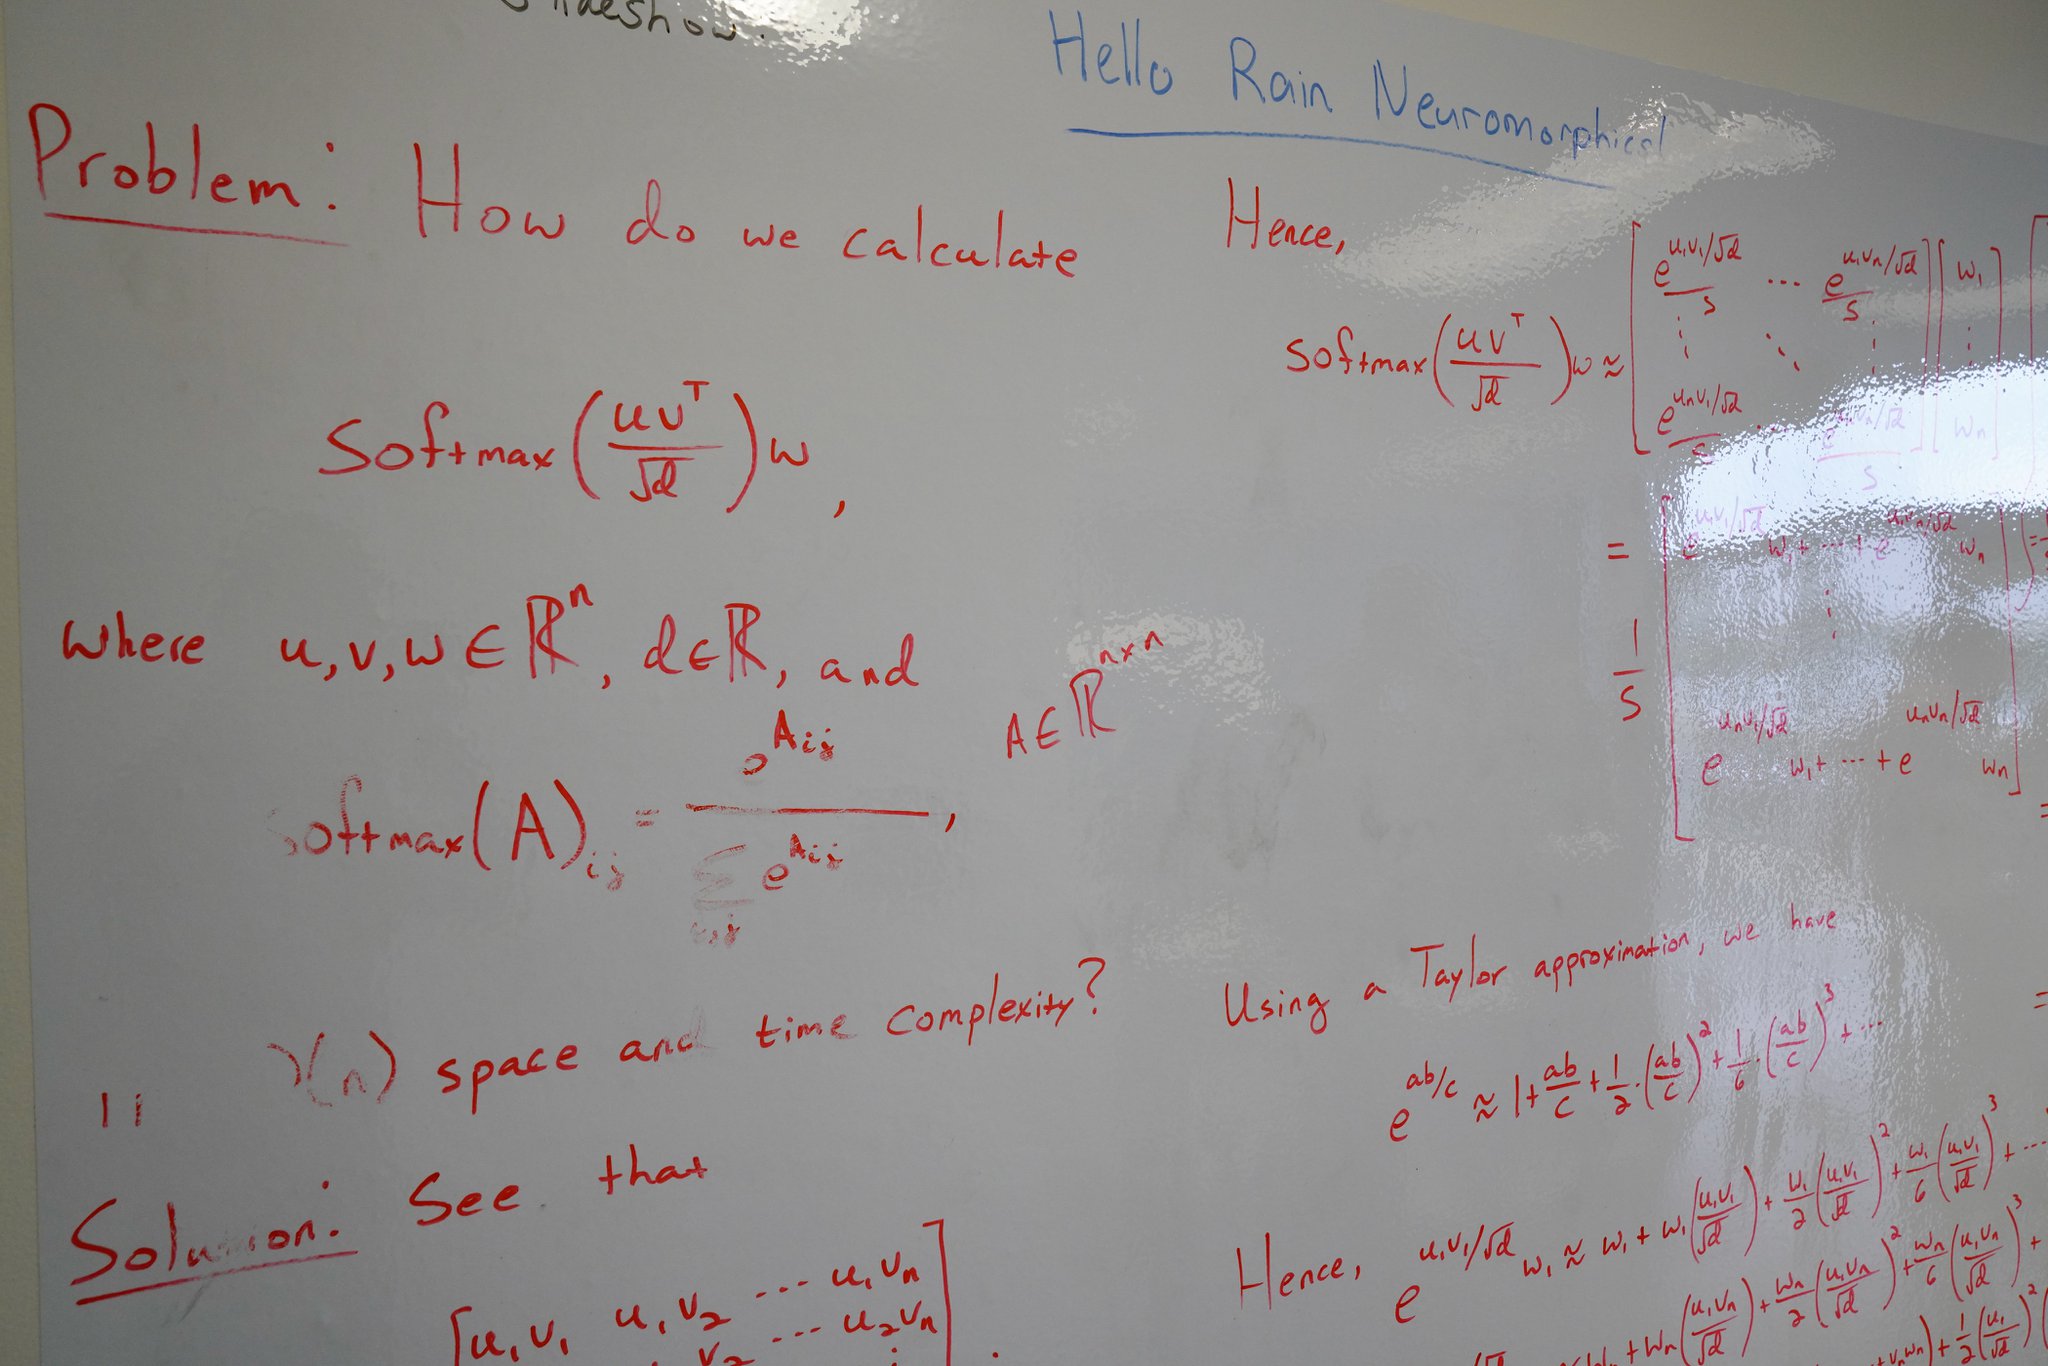 slideshow.
Hello Rain Neuromorphical
Problem: How do we calculate
Softmax(uvᵀ/√d)w,
where u,v,w∈ℝⁿ, d∈ℝ, and
softmax(A)ij = e^Aij / Σi,j e^Aij, A∈ℝⁿˣⁿ
O(n) space and time complexity?
Solution: See that
[u₁v₁ u₁v₂ ... u₁vₙ]
v₂ ... u₂vₙ
Hence,
softmax(uvᵀ/√d)w ≈ [e^(u₁v₁/√d)/s ... e^(u₁vₙ/√d)/s] [w₁]
⋮ ⋱ ⋮ ⋮
[e^(uₙv₁/√d)/s ... e^(uₙvₙ/√d)/s] [wₙ]
= 1/s [e^(u₁v₁/√d) w₁+ ... +e^(u₁vₙ/√d) wₙ]
⋮
[e^(uₙv₁/√d) w₁+ ... +e^(uₙvₙ/√d) wₙ]
Using a Taylor approximation, we have
e^(ab/c) ≈ 1+ab/c+1/2·(ab/c)²+1/6·(ab/c)³+...
Hence, e^(u₁v₁/√d) w₁ ≈ w₁+w₁(u₁v₁/√d)+w₁/2(u₁v₁/√d)²+w₁/6(u₁v₁/√d)³+...
+wₙ(u₁vₙ/√d)+wₙ/2(u₁vₙ/√d)²+wₙ/6(u₁vₙ/√d)³+